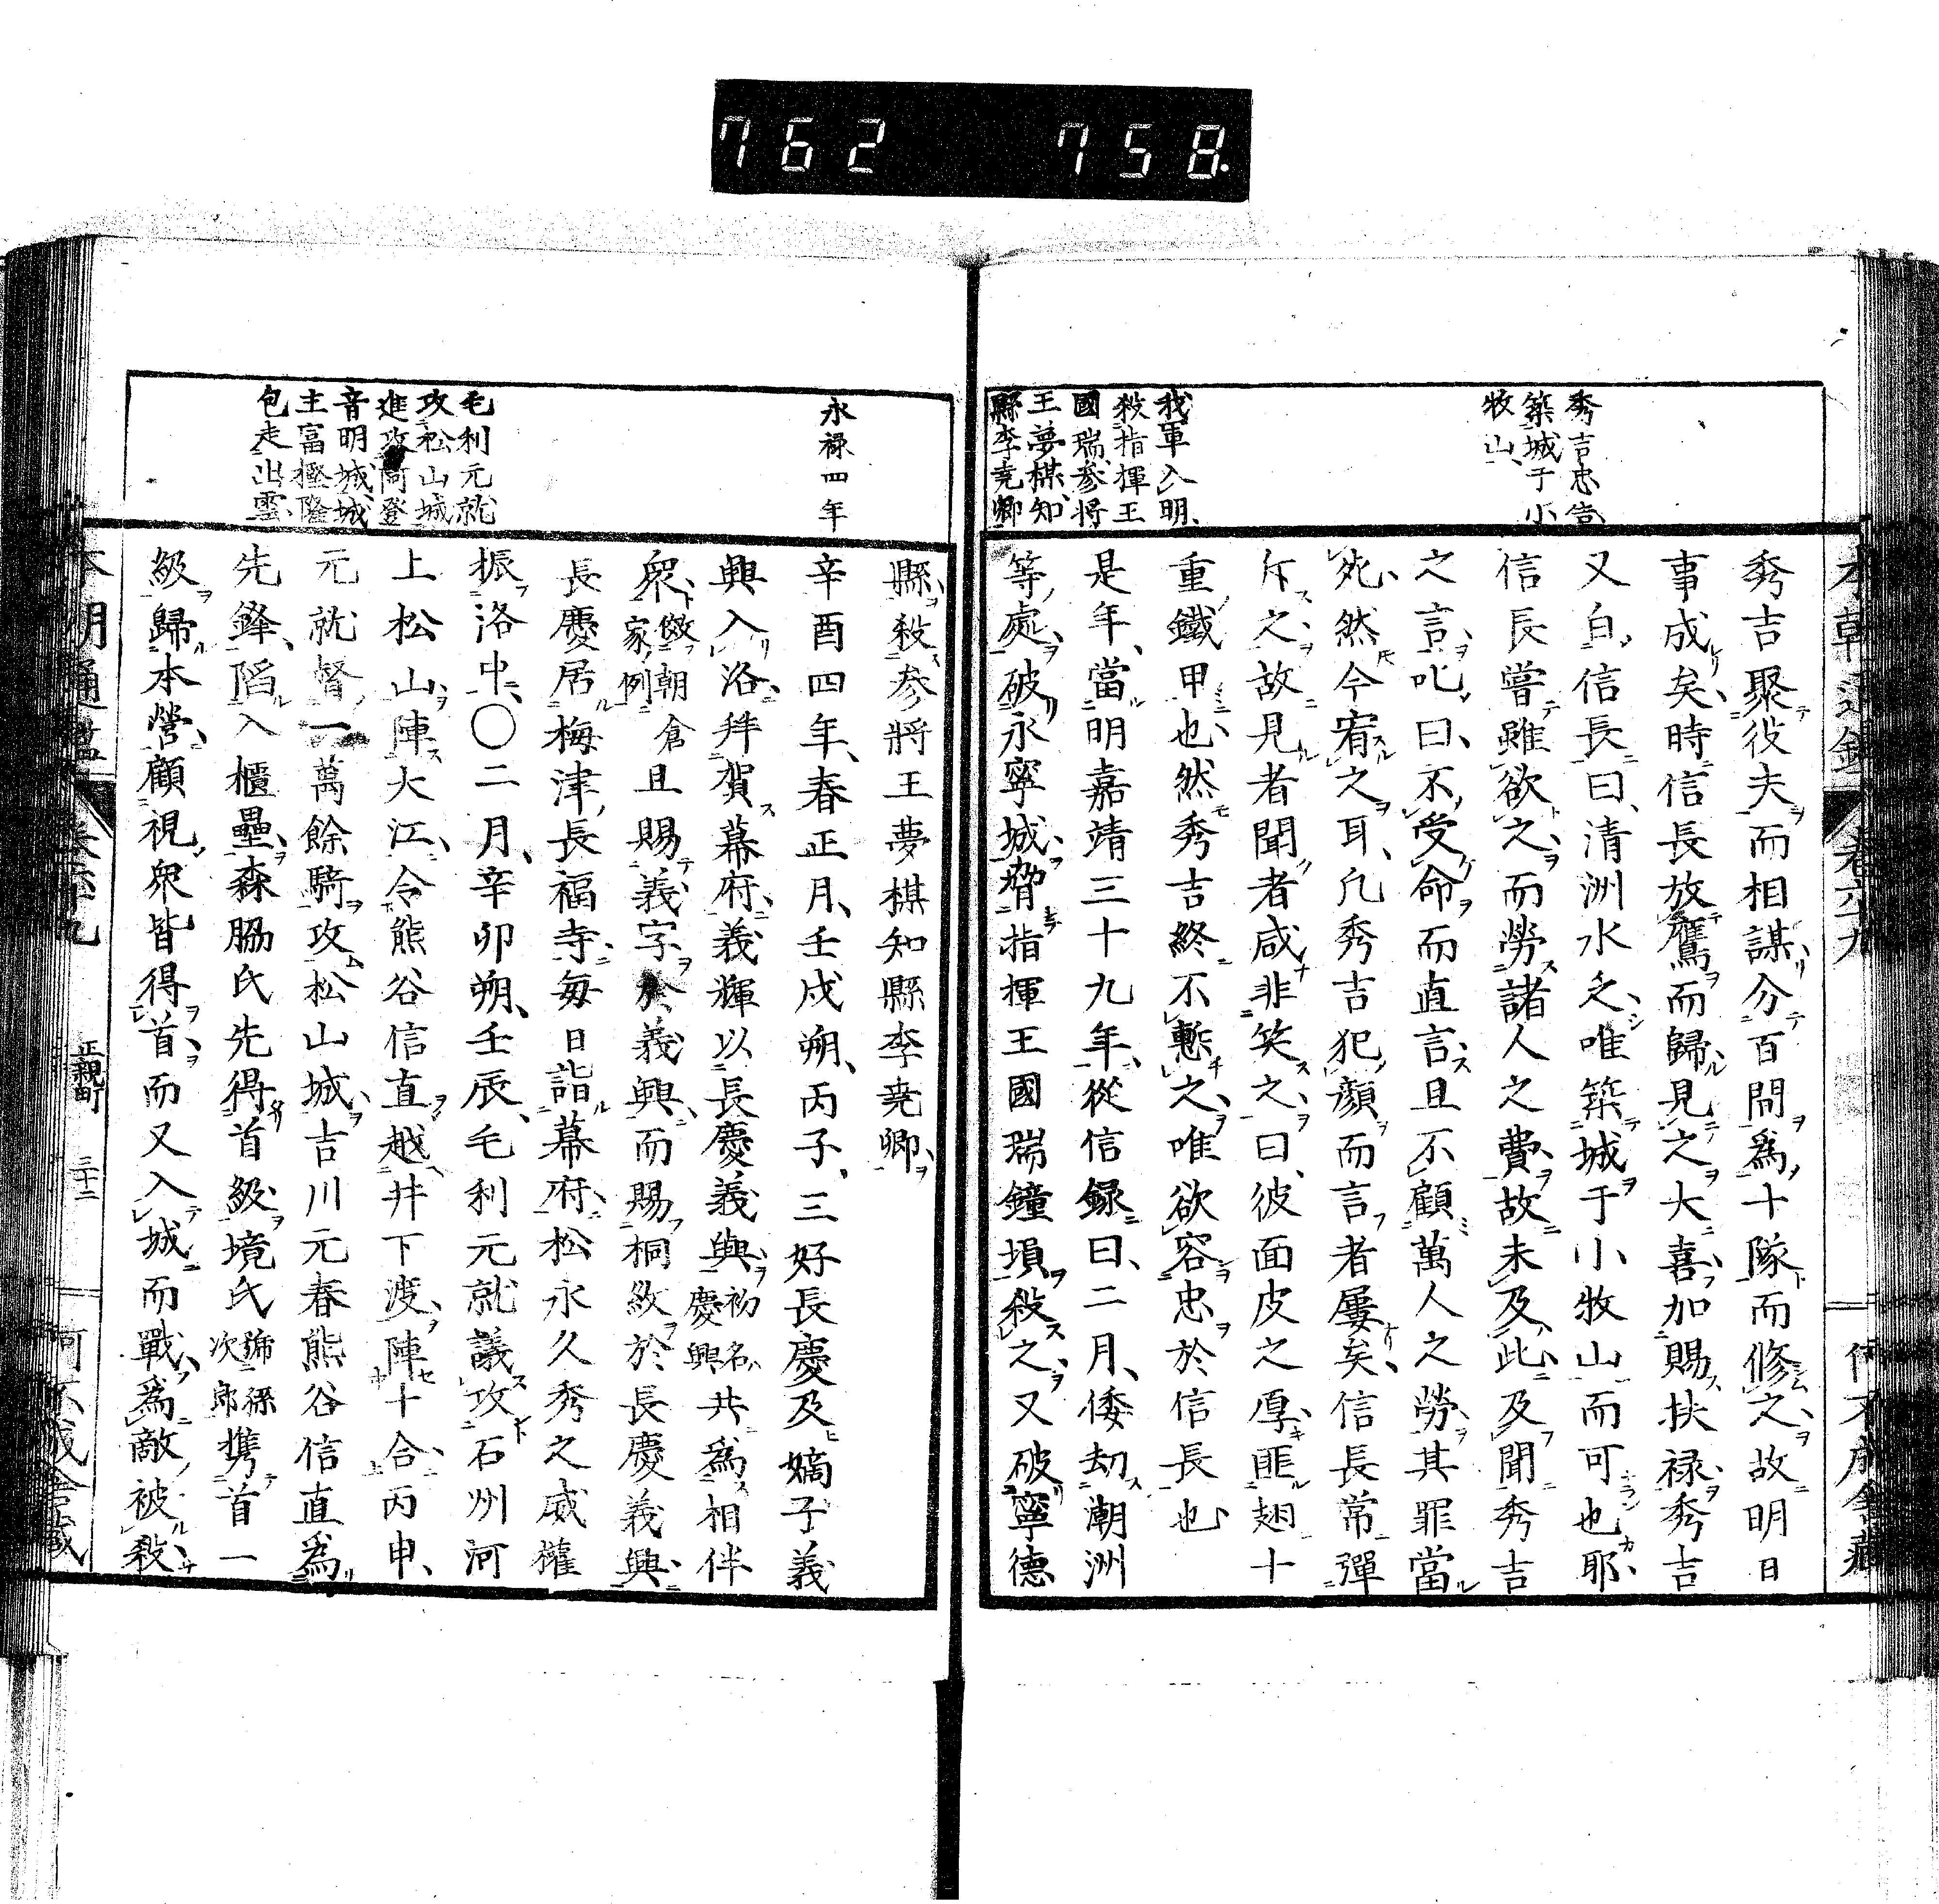 762 758.
秀吉忠告
築城于小
牧山
我軍入明
殺指揮王
國瑞參將
王夢棋知
縣李堯卿
秀吉聚役夫而相謀分百間爲十隊而修之故明日
事成矣時信長放鷹而歸見之大喜加賜扶禄秀吉
又白信長曰清洲水乏唯築城于小牧山而可也耶
信長嘗雖欲之而勞諸人之費故未及此及聞秀吉
之言叱曰不受命而直言且不顧萬人之勞其罪當
死然今宥之耳凢秀吉犯顔而言者屢矣信長常彈
斥之故見者聞者咸非笑之曰彼面皮之厚匪翅十
重鐵甲也然秀吉終不慙之唯欲容忠於信長也
是年當明嘉靖三十九年從信録曰二月倭劫潮洲
等處破永寧城脅指揮王國瑞鐘塤殺之又破寧德
永禄四年
毛利元就
攻松山城
進攻河登
音明城城
主富極隆
包走出雲
縣殺參將王夢棋知縣李堯卿
辛酉四年春正月壬戌朔丙子三好長慶及嫡子義
興入洛拜賀幕府義輝以長慶義興初名慶興共爲相伴
衆傚朝倉家例且賜義字於義興而賜桐紋於長慶義興
長慶居梅津長福寺毎日詣幕府松永久秀之威權
振洛中〇二月辛卯朔壬辰毛利元就議攻石州河
上松山陣大江令熊谷信直越井下渡陣十合丙申
元就督一萬餘騎攻松山城吉川元春熊谷信直爲
先鋒陷入櫃壘森脇氏先得首級境氏號孫次郎携首一
級歸本營顧視衆皆得首而又入城而戰爲敵被殺
本朝通鑑 卷六十九 正親町 三十二